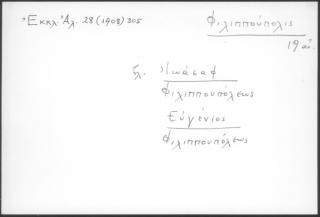 Ἐκκλ. Ἀλ. 28 (1908) 305
Φιλιππούπολις
19 αἰ.
βλ. Ἰωάσαφ
Φιλιππουπόλεως
Εὐγένιος
Φιλιππουπόλεως